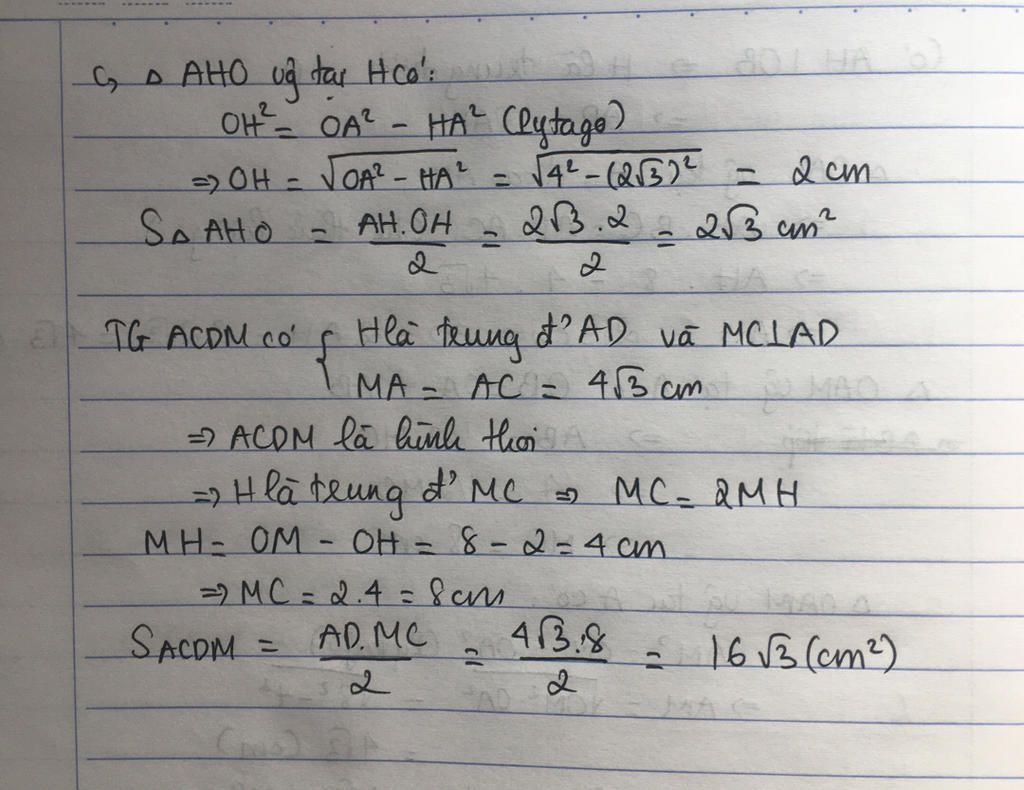 c, △ AHO vg tại H có:
OH² = OA² - HA² (Pytago)
=> OH = √(OA² - HA²) = √(4² - (2√3)²) = 2 cm
S△ AHO = AH.OH/2 = 2√3 . 2/2 = 2√3 cm²
TG ACDM có { H là trung đ' AD và MC⊥AD
MA = AC = 4√3 cm
=> ACDM là hình thoi
=> H là trung đ' MC => MC = 2MH
MH = OM - OH = 8 - 2 = 4 cm
=> MC = 2.4 = 8cm
S ACDM = AD.MC/2 = 4√3.8/2 = 16√3 (cm²)